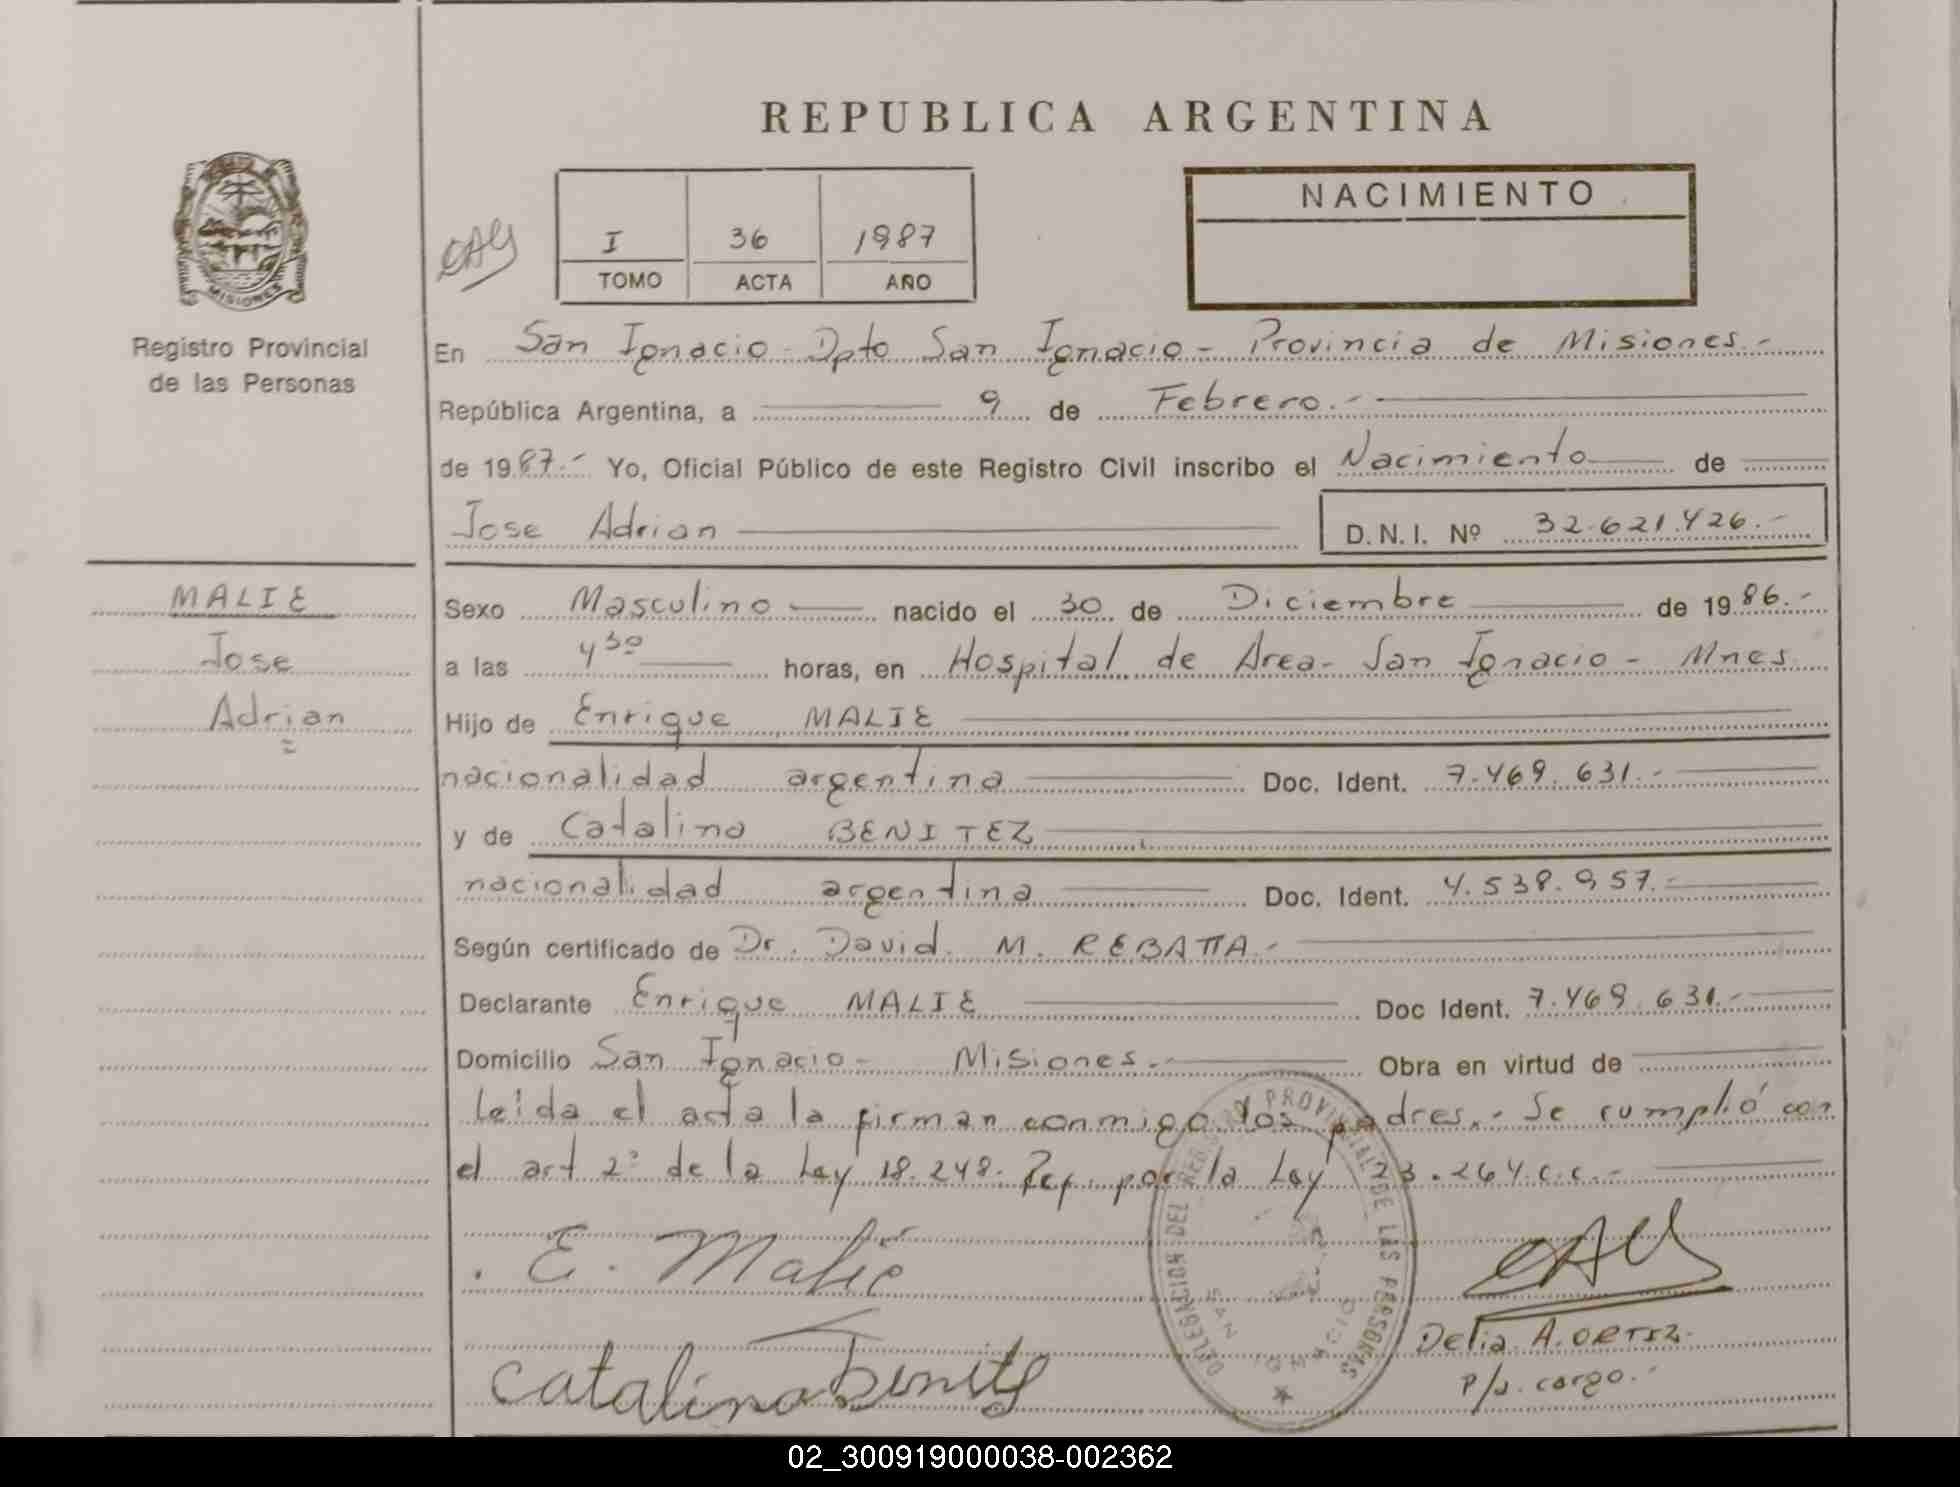 REPUBLICA ARGENTINA
NACIMIENTO
I 36 1987
TOMO ACTA AÑO
MISIONES
Registro Provincial
de las Personas
En San Ignacio - Dpto San Ignacio - Provincia de Misiones.-
República Argentina, a 9 de Febrero.-
de 1987.- Yo, Oficial Público de este Registro Civil inscribo el Nacimiento de
Jose Adrian D.N.I. Nº 32.621.426.-
MALIE
Jose
Adrian
Sexo Masculino nacido el 30 de Diciembre de 1986.-
a las 4 30 horas, en Hospital de Area- San Ignacio - Mnes
Hijo de Enrique MALIE
nacionalidad argentina Doc. Ident. 7.469.631.-
y de Catalina BENITEZ
nacionalidad argentina Doc. Ident. 4.538.957.-
Según certificado de Dr. David M. REBATTA.-
Declarante Enrique MALIE Doc Ident. 7.469.631.-
Domicilio San Ignacio - Misiones.- Obra en virtud de
leida el acta la firman conmigo los padres.- Se cumplió con
el art 2º de la Ley 18.248. Ref. por la Ley 23.264.c.c.-
E. Malie
Catalina Benitez
DELEGACION DEL REGISTRO PROVINCIAL DE LAS PERSONAS
SAN IGNACIO
Delia A. ORTIZ.
P/s. cargo.-
02_300919000038-002362